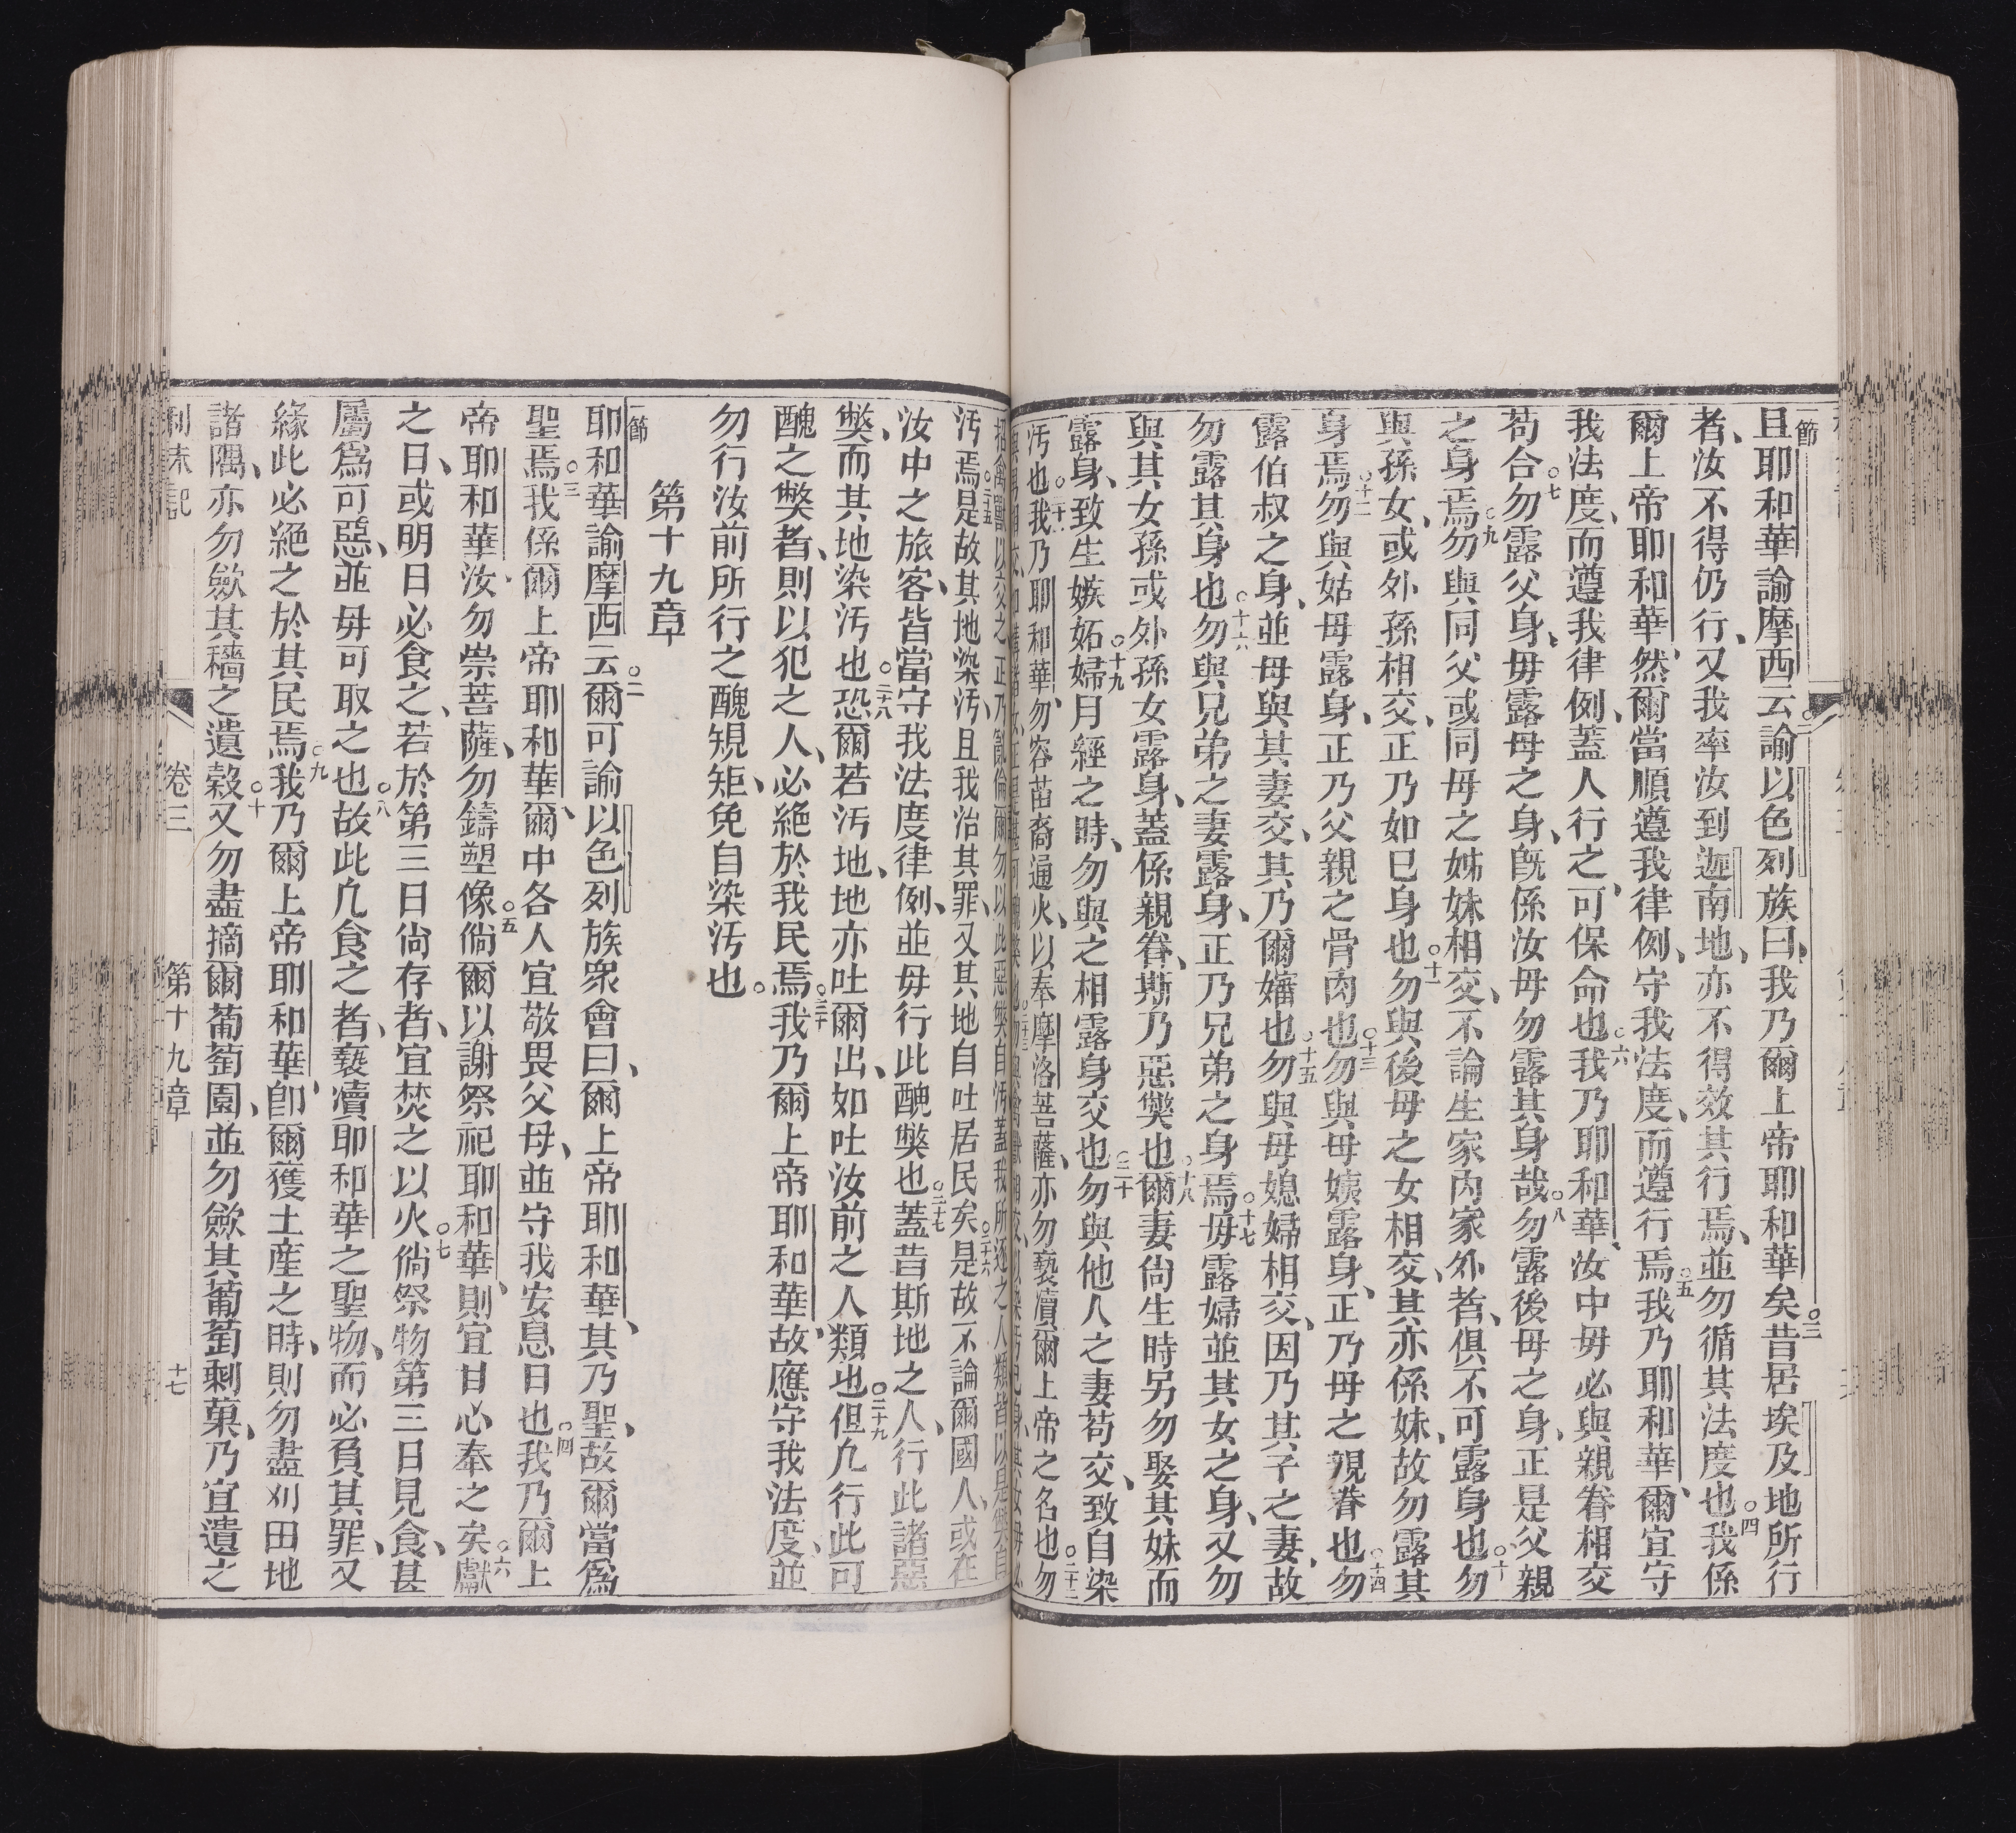 一節
且耶和華諭摩西云○二諭以色列族曰、我乃爾上帝耶和華矣○三昔居埃及地所行
者、汝不得仍行、又我率汝到迦南地、亦不得效其行焉、並勿循其法度也○四我係
爾上帝耶和華、然爾當順遵我律例、守我法度、而遵行焉○五我乃耶和華、爾宜守
我法度、而遵我律例、蓋人行之、可保命也○六我乃耶和華、汝中毋必與親眷相交
苟合○七勿露父身、毋露母之身、旣係汝母勿露其身哉○八勿露後母之身、正是父親
之身焉○九勿與同父或同母之姊妹相交、不論生家內家外者、俱不可露身也○十勿
與孫女、或外孫相交、正乃如己身也○十一勿與後母之女相交、其亦係妹、故勿露其
身焉○十二勿與姑母露身、正乃父親之骨肉也○十三勿與母姨露身、正乃母之親眷也○十四勿
露伯叔之身、並母與其妻交、其乃爾嬸也○十五勿與母媳婦相交、因乃其子之妻、故
勿露其身也○十六勿與兄弟之妻露身、正乃兄弟之身焉○十七毋露婦並其女之身、又勿
與其女孫或外孫女露身、蓋係親眷、斯乃惡獘也○十八爾妻尙生時另勿娶其妹而
露身、致生嫉妬○十九婦月經之時、勿與之相露身交也○二十勿與他人之妻苟交、致自染
汚也○二十一我乃耶和華、勿容苗裔通火、以奉摩洛菩薩、亦勿褻瀆爾上帝之名也○二十二勿
汚焉○二十五是故其地染汚、且我治其罪、又其地自吐居民矣○二十六是故不論爾國人、或在
汝中之旅客、皆當守我法度律例、並毋行此醜獘也○二十七蓋昔斯地之人、行此諸惡
獘、而其地染汚也○二十八恐爾若汚地、地亦吐爾出、如吐汝前之人類也○二十九但凢行此可
醜之獘者、則以犯之人、必絕於我民焉○三十我乃爾上帝耶和華、故應守我法度、並
勿行汝前所行之醜規矩、免自染汚也。
第十九章
一節
耶和華諭摩西云○二爾可諭以色列族衆會曰、爾上帝耶和華、其乃聖、故爾當爲
聖焉○三我係爾上帝耶和華、爾中各人宜敬畏父母、並守我安息日也○四我乃爾上
帝耶和華、汝勿崇菩薩、勿鑄塑像○五倘爾以謝祭祀耶和華、則宜甘心奉之矣○六獻
之日、或明日必食之、若於第三日尙存者、宜焚之以火○七倘祭物第三日見食、甚
屬爲可惡、並毋可取之也○八故此凢食之者、褻瀆耶和華之聖物、而必負其罪、又
緣此必絕之於其民焉○九我乃爾上帝耶和華、卽爾獲土產之時、則勿盡刈田地
諸隅、亦勿歛其穡之遺穀○十又勿盡摘爾葡萄園、並勿歛其葡萄剩菓、乃宜遺之
利未記 卷三 第十九章 十七